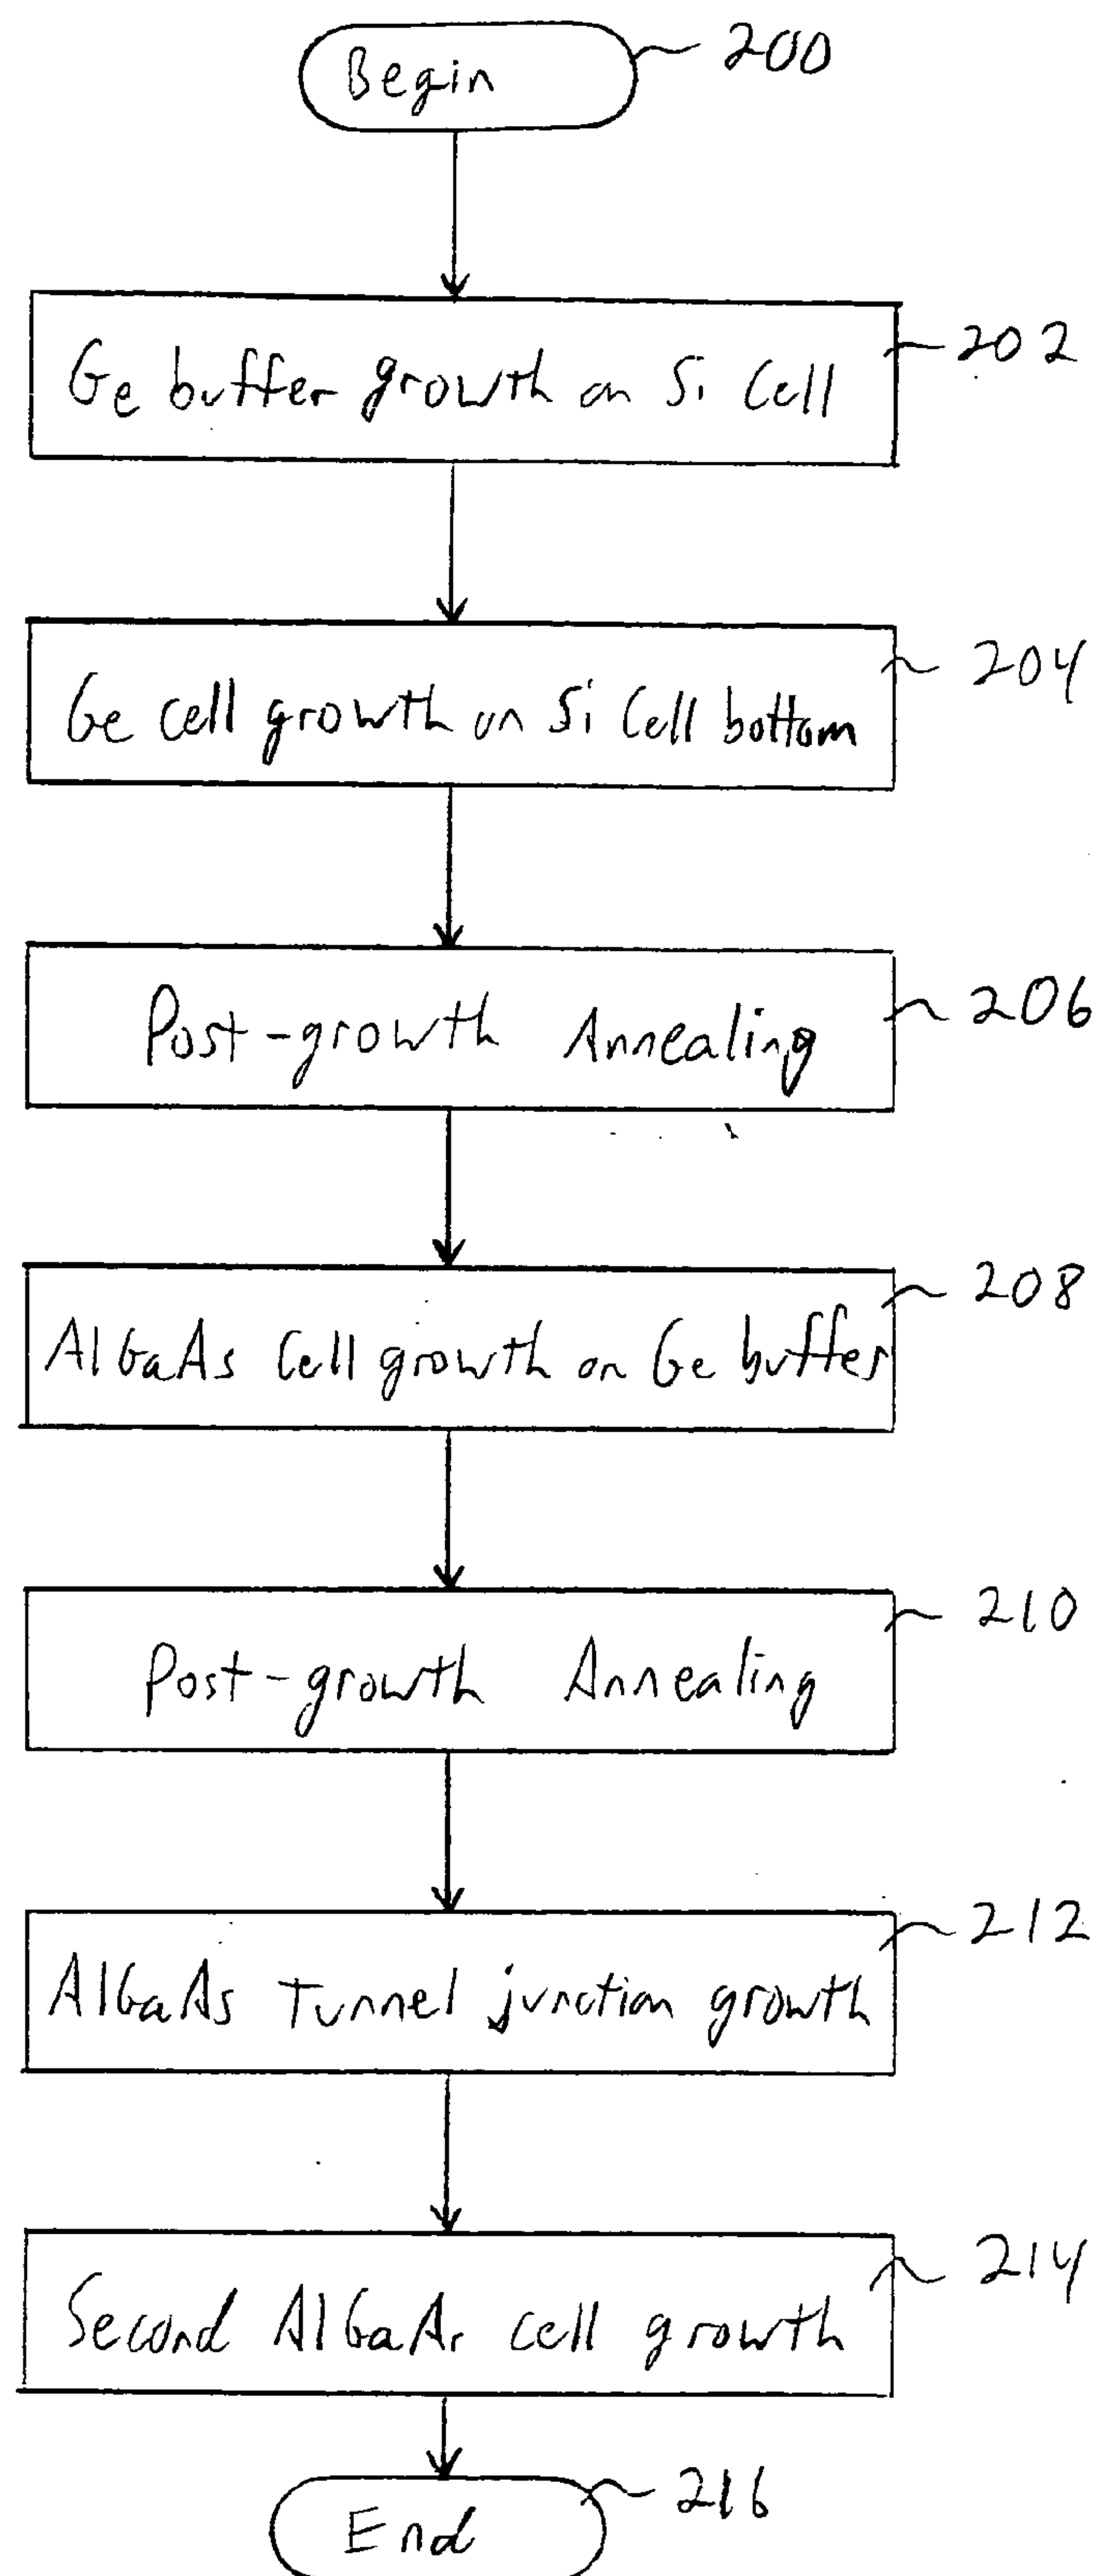 Begin 200
Ge buffer growth on Si Cell 202
Ge cell growth on Si Cell bottom 204
Post-growth Annealing 206
AlGaAs Cell growth on Ge buffer 208
Post-growth Annealing 210
AlGaAs Tunnel junction growth 212
Second AlGaAs cell growth 214
End 216